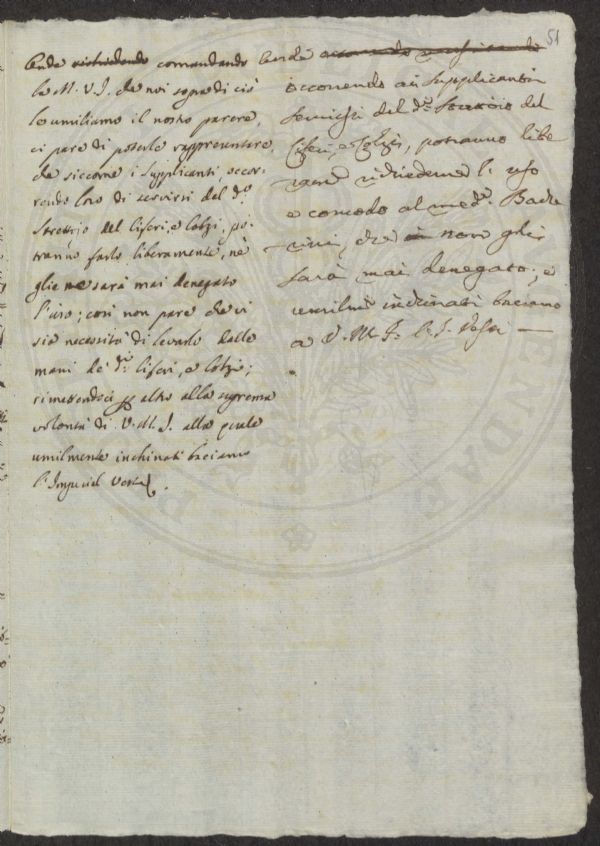 51
comandando
la M. V. I. che noi sopra di ciò
le umiliamo il nostro parere,
ci pare di poterle rappresentare,
che siccome i supplicanti, occor-
rendo loro di servirsi del d.º
del Ciferi, e Colzi, po-
tranno farlo liberamente, nè
glie ne sarà mai denegato
l'uso; così non pare che vi
sia necessità di levarlo dalle
mani de' d.i Ciferi, e Colzi;
rimettendoci altro alla suprema
volontà di V. M. I. alla quale
umilmente inchinati baciamo
l'
occorrendo ai Supplicanti
servirsi del d.º del
Ciferi, e Colzi, potranno libe
richiederne l'uso
e comodo al med.º
che non glie
sarà mai denegato; e
inchinati baciamo
a V. M. I.